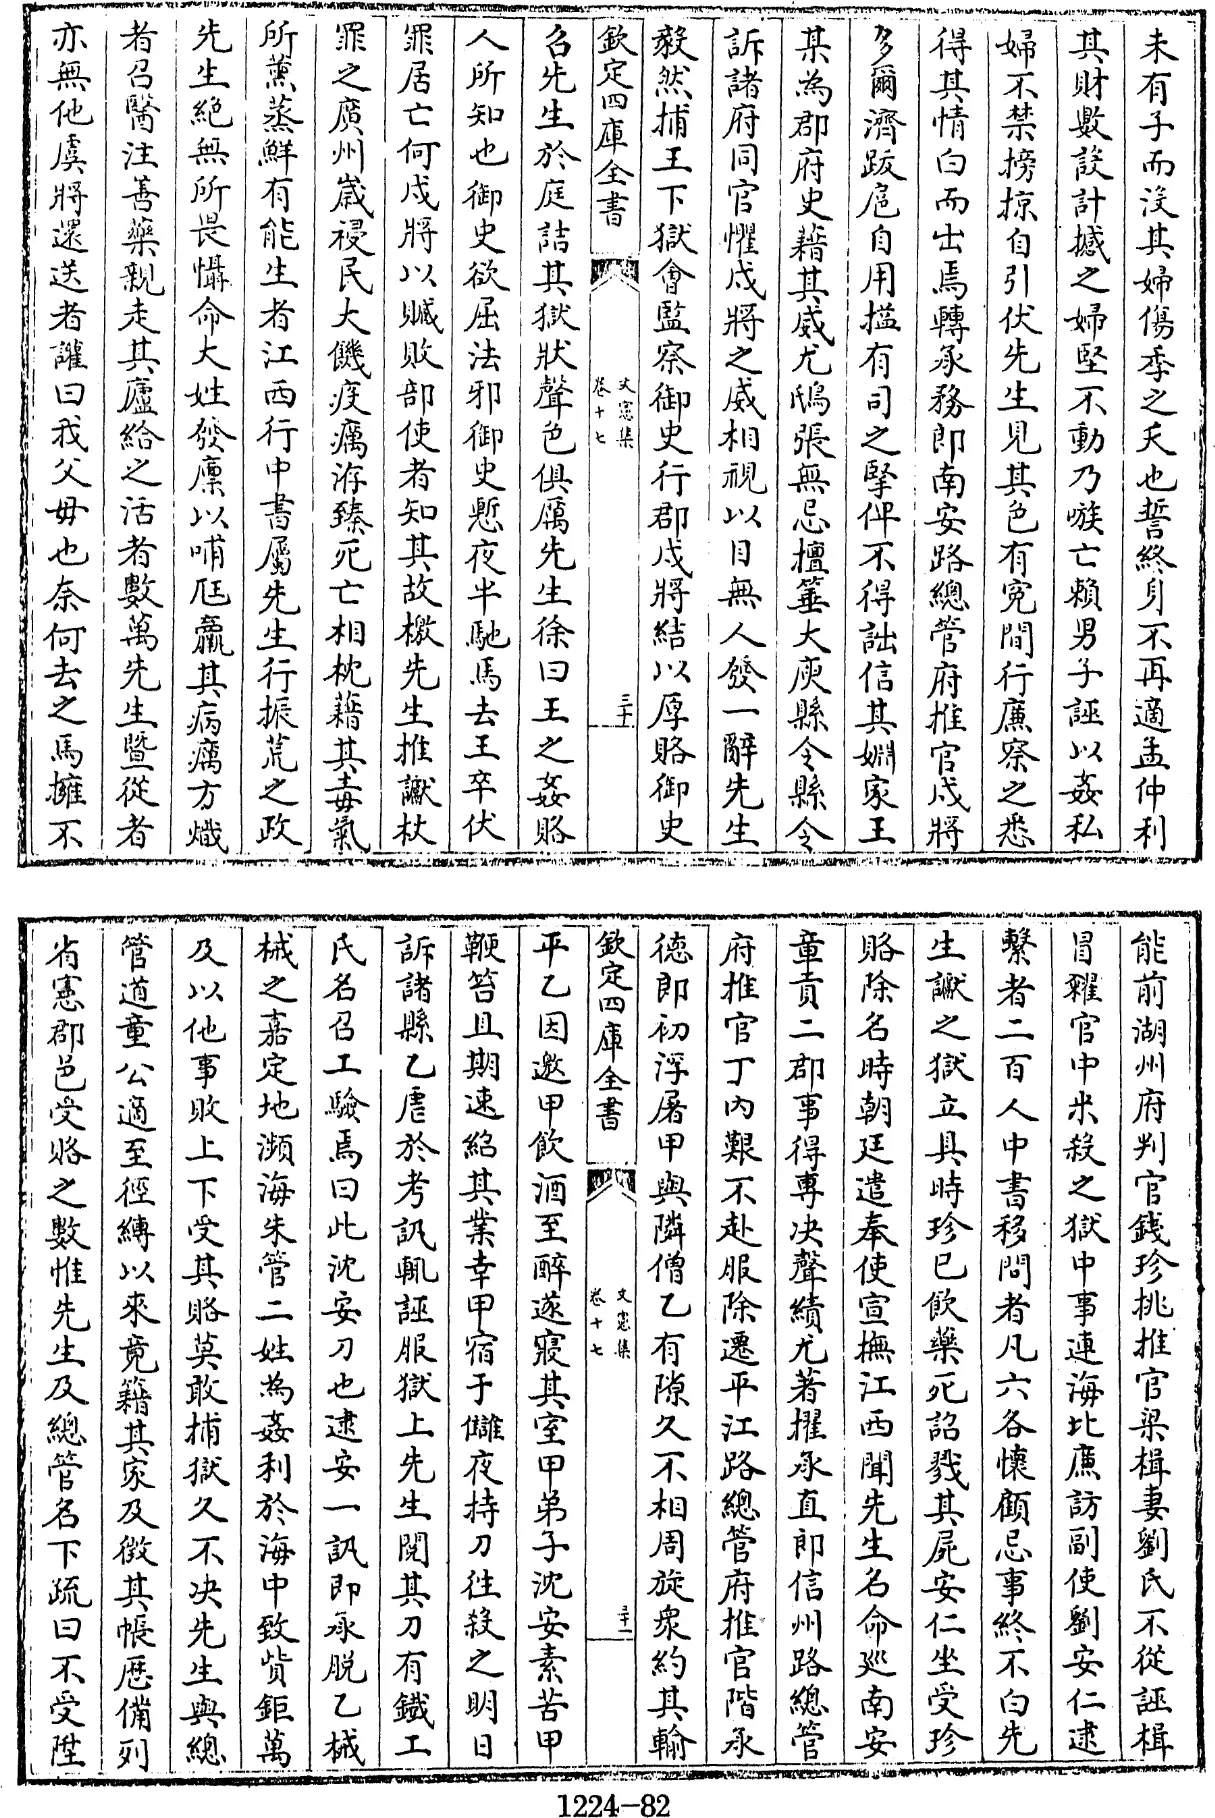 未有子而沒其婦傷季之夭也誓終身不再適孟仲利
其財數設計撼之婦堅不動乃嗾亡賴男子誣以姦私
婦不禁搒掠自引伏先生見其色有寃間行廉察之悉
得其情白而出焉轉承務郎南安路總管府推官戍將
多爾濟跋扈自用搤有司之掔俾不得詘信其婣家王
某為郡府史藉其威尤鴟張無忌擅箠大庾縣令縣令
訴諸府同官懼戍將之威相視以目無人發一辭先生
毅然捕王下獄會監察御史行郡戍將結以厚賂御史
欽定四庫全書
文憲集
卷十七
三十
召先生於庭詰其獄狀聲色俱厲先生徐曰王之姦賂
人所知也御史欲屈法邪御史慙夜半馳馬去王卒伏
罪居亡何戍將以贓敗部使者知其故檄先生推讞杖
罪之廣州嵗祲民大饑疫癘洊臻死亡相枕藉其毒氣
所薰蒸鮮有能生者江西行中書屬先生行振荒之政
先生絶無所畏懾命大姓發廪以哺尫羸其病癘方熾
者召醫注善藥親走其廬給之活者數萬先生暨從者
亦無他虞將還送者讙曰我父母也奈何去之馬擁不
能前湖州府判官錢珍挑推官梁楫妻劉氏不從誣楫
冒糴官中米殺之獄中事連海北廉訪副使劉安仁逮
繫者二百人中書移問者凡六各懷顧忌事終不白先
生讞之獄立具時珍已飲藥死詔戮其屍安仁坐受珍
賂除名時朝廷遣奉使宣撫江西聞先生名命廵南安
章貢二郡事得專决聲績尤著擢承直郎信州路總管
府推官丁内艱不赴服除遷平江路總管府推官階承
德郎初浮屠甲與隣僧乙有隙久不相周旋衆約其輸
欽定四庫全書
文憲集
卷十七
三十一
平乙因邀甲飲酒至醉遂寢其室甲弟子沈安素苦甲
鞭笞且期速紹其業幸甲宿于讎夜持刀徃殺之明日
訴諸縣乙虐於考訊輒誣服獄上先生閱其刀有鐵工
氏名召工驗焉曰此沈安刀也逮安一訊即承脱乙械
械之嘉定地瀕海朱管二姓為姦利於海中致貲鉅萬
及以他事敗上下受其賂莫敢捕獄久不决先生與總
管道童公適至徑縛以來竟籍其家及徴其帳厯備列
省憲郡邑受賂之數惟先生及總管名下疏曰不受陞
1224-82